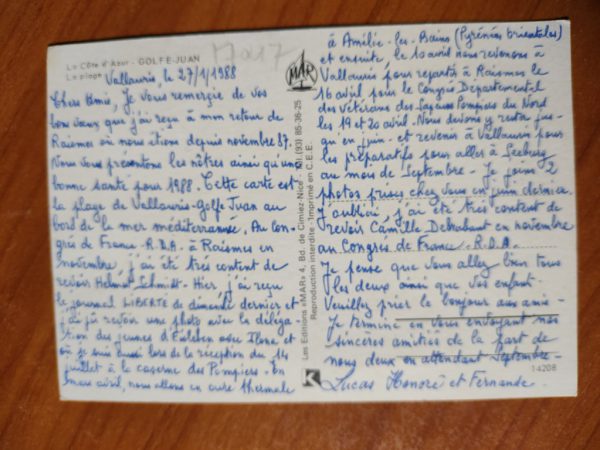 La Côte d'Azur - GOLFE-JUAN
La plage
Vallauris, le 27/1/1988
Chers Amis, Je vous remercie de vos
bons vœux que j'ai reçu à mon retour de
Raismes où nous étions depuis novembre 87.
Nous vous présentons les nôtres ainsi qu'une
bonne santé pour 1988. Cette carte est
la plage de Vallauris-Golfe Juan au
bord de la mer méditerranée. Au Con-
grès de France-R.D.A. à Raismes en
novembre, j'ai été très content de
revoir Helmut Schmidt. Hier, j'ai reçu
le journal LIBERTÉ de dimanche dernier et
j'ai pu revoir une photo avec la déléga-
tion des jeunes d'Eisleben avec Ilona et
où je suis aussi lors de la réception du 14
juillet à la caserne des Pompiers. En
mars avril, nous allons en cure thermale
MAR
Les Editions «MAR» 4, Bd. de Cimiez-Nice - Tél. (93) 85-36-25
Reproduction interdite - Imprimé en C.E.E.
à Amélie-les-Bains (Pyrénées Orientales)
et ensuite, le 10 avril nous revenons à
Vallauris pour repartir à Raismes le
16 avril pour le Congrès Départemental
des Vétérans des Sapeurs Pompiers du Nord
les 19 et 20 avril. Nous devons y rester jus-
qu'en juin et revenir à Vallauris pour
les préparatifs pour aller à Seeburg
au mois de Septembre - Je joins 2
photos prises chez vous en juin dernier.
J'oubliai, j'ai été très content de
revoir Camille Debrabant en novembre
au Congrès de France-R.D.A.
Je pense que vous allez bien tous
les deux ainsi que vos enfants.
Veuillez prier le bonjour aux amis -
Je termine en vous envoyant nos
sincères amitiés de la part de
nous deux en attendant Septembre -
Lucas Honoré et Fernande.
14208